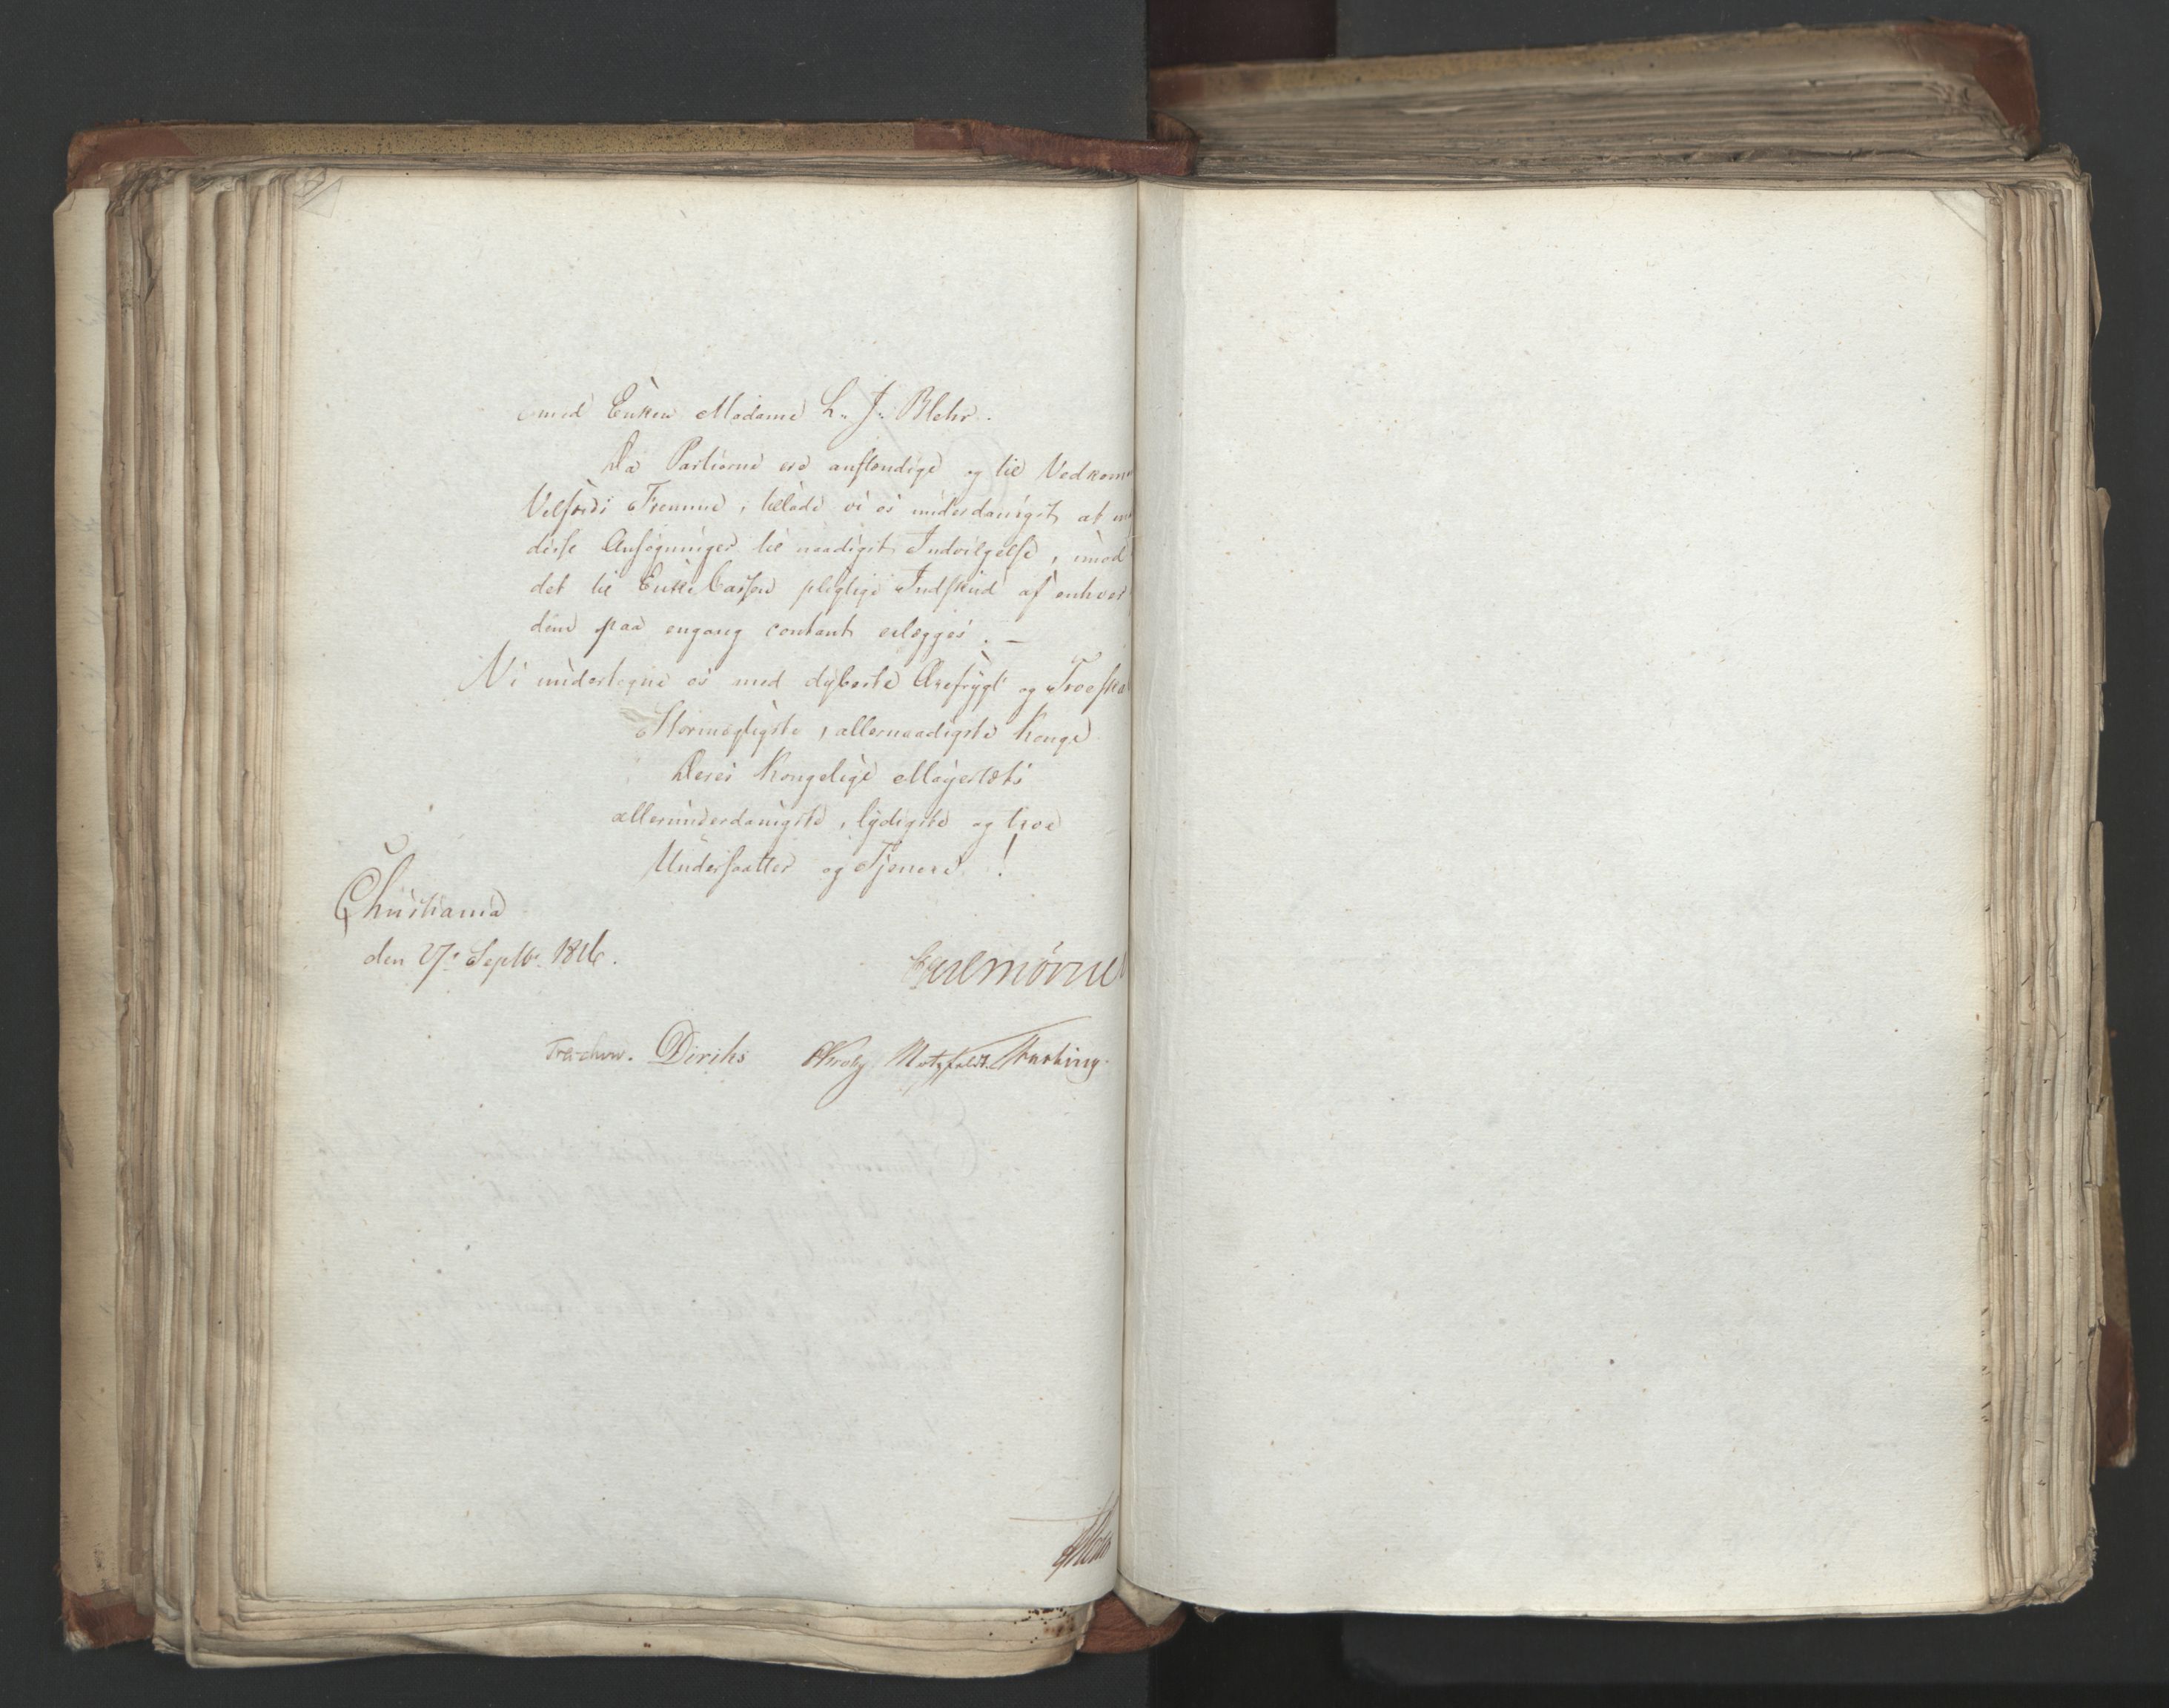 med Enken Madame L. J. Blehr.
Da Partierne ere anstændige og til Vedkom
Velfærds Fremme, tillade vi os underdanigst at
disse Ansøgninger til naadigst Indvilgelse, imod
det til Enke Cassen pligtige Indskud af enhver
dem paa engang contant erlægges. —
Vi undertegne os med dybeste Ærefrygt og Troeska
Stormægtigste, allernaadigste Konge
Deres Kongelige Majestæts
allerunderdanigste, lydigste og troe
Undersaatter og Tjenere!
Christiania
den 27. Septbr. 1816.
Mörner
Treschow. Diriks Krog Motzfeldt.